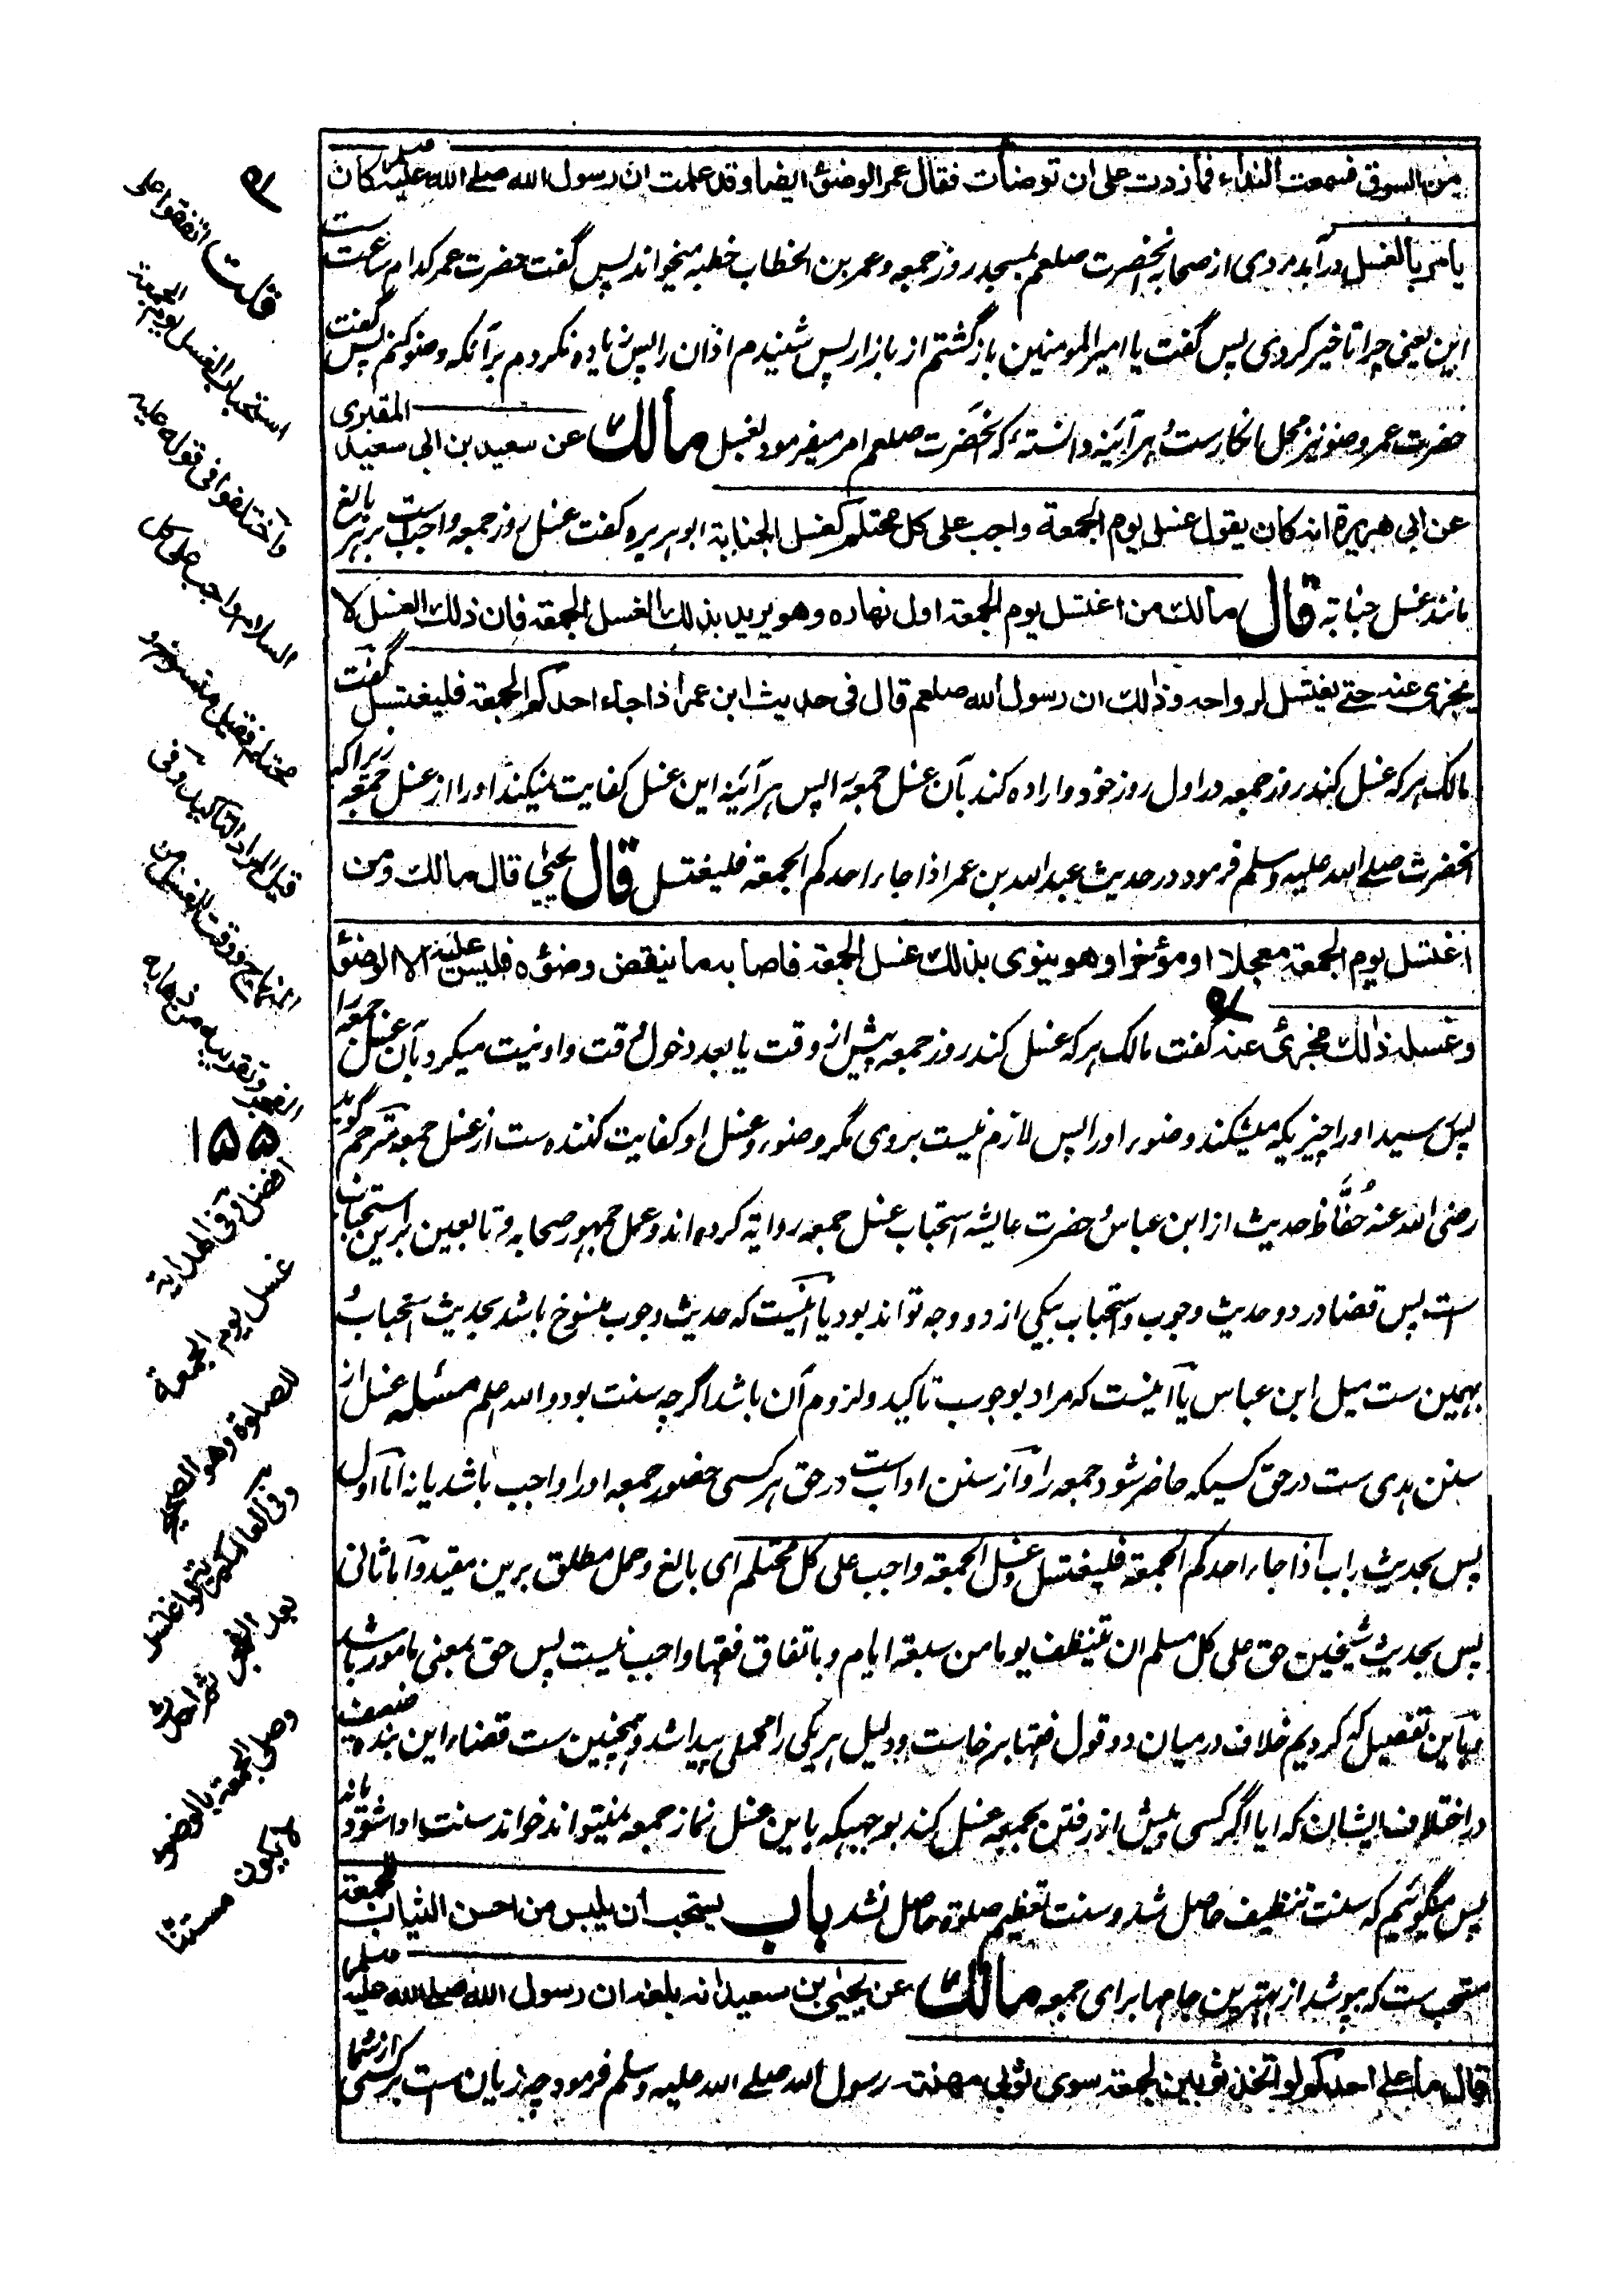 من السوق فسمعت النداء فما زدت على ان توضأت فقال عمر الوضوء ايضا وقد علمت ان رسول الله صلى الله عليه وسلم كان
يامر بالغسل درآمد مردی از صحابه آنحضرت صلعم بمسجد روز جمعه وعمر بن الخطاب خطبه میخواند پس گفت حضرت عمر کدام ساعت ست
این یعنی چرا تاخیر کردی پس گفت یا امیر المومنین باز گشتم از بازار پس شنیدم اذان را پس زیاده نکردم برآنکه وضو کنم پس گفت
حضرت عمر وضو نیز محل انکارست هرآئینه دانسته که آنحضرت صلعم امر میفرمود بغسل مالك عن سعيد بن ابي سعيد المقبري
عن ابي هريرة انه كان يقول غسل يوم الجمعة واجب على كل محتلم كغسل الجنابة ابو هریره گفت غسل روز جمعه واجب ست بر هر بالغ
مانند غسل جنابة قال مالك من اغتسل يوم الجمعة اول نهاره وهو يريد بذلك الغسل الجمعة فان ذلك الغسل لا
يجزى عنه حتى يغتسل لرواحه وذلك ان رسول الله صلعم قال في حديث ابن عمر اذا جاء احدكم الجمعة فليغتسل گفت
مالک هر که غسل کند روز جمعه در اول روز خود و اراده کند بآن غسل جمعه را پس هرآئینه این غسل کفایت نمیکند او را از غسل جمعه زیرا که
آنحضرت صلی الله علیه وسلم فرمود در حدیث عبد الله بن عمر اذا جاء احدكم الجمعة فليغتسل قال يحيى قال مالك ومن
اغتسل يوم الجمعة معجلا او مؤخرا وهو ينوى بذلك غسل الجمعة فاصابه ما ينقض وضوءه فليس عليه الا الوضوء
وغسله ذلك مجزئ عنه گفت مالک هر که غسل کند روز جمعه پیش از وقت یا بعد دخول وقت و او نیت میکرد بآن غسل جمعه را
پس رسید او را چیزیکه میشکند وضو را او را پس لازم نیست بر وی مگر وضو و غسل او کفایت کننده ست از غسل جمعه مترجم گوید
رضی الله عنه حفّاظ حدیث از ابن عباس و حضرت عایشه استحباب غسل جمعه روایة کرده اند و عمل جمهور صحابه و تابعین برین استحباب
است پس قضا در دو حدیث وجوب و استحباب بیکی از دو وجه تواند بود یا آنست که حدیث وجوب منسوخ باشد بحدیث استحباب و
بهمین ست میل ابن عباس یا آنست که مراد بوجوب تاکید و لزوم آن باشد اگرچه سنت بود والله اعلم مسئله غسل از
سنن هدی ست در حق کسیکه حاضر شود جمعه را و از سنن اداب ست در حق هر کسی حضور جمعه او را واجب باشد یا نه اما اول
پس بحدیث باب اذا جاء احدكم الجمعة فليغتسل وغسل الجمعة واجب على كل محتلم ای بالغ و حمل مطلق برین مقید و اما ثانی
پس بحدیث شیخین حق على كل مسلم ان يتنظف يوما من سبعة ايام و باتفاق فقها واجب نیست پس حق بمعنی مامور باشد
و باین تفصیل که کردیم خلاف درمیان دو قول فقها برخاست و دلیل هر یکی را محملی پیدا شد و همچنین ست قضاء این بنده ضعیف
در اختلاف ایشان که ایا اگر کسی پیش از رفتن بجمعه غسل کند بوجهیکه باین غسل نماز جمعه نمیتواند خواند سنت ادا شود یا نه
پس میگوئیم که سنت تنظیف حاصل شد و سنت تعظیم صلوة حاصل نشد باب يستحب ان يلبس من احسن الثياب للجمعة
مستحب ست که بپوشد از بهترین جامها برای جمعه مالك عن يحيى بن سعيد انه بلغه ان رسول الله صلى الله عليه وسلم
قال ما على احدكم لو اتخذ ثوبين لجمعة سوى ثوبي مهنته رسول الله صلی الله علیه وسلم فرمود چه زیان است بر کسی از شما
قلت اتفقوا على
استحباب الغسل يوم الجمعة
واختلفوا في قوله عليه
السلام واجب على كل
محتلم فقيل منسوخ و
قيل المراد التاكيد وفى
المنهاج ووقت الغسل من
الفجر وتقريبه من ذهابه
۱۵۵
افضل وفى الهداية
غسل يوم الجمعة
للصلوة وهو الصحيح
وفى العالمكيرية لو اغتسل
بعد الفجر ثم احدث
وصلى الجمعة بالوضوء
لا يكون مستنا